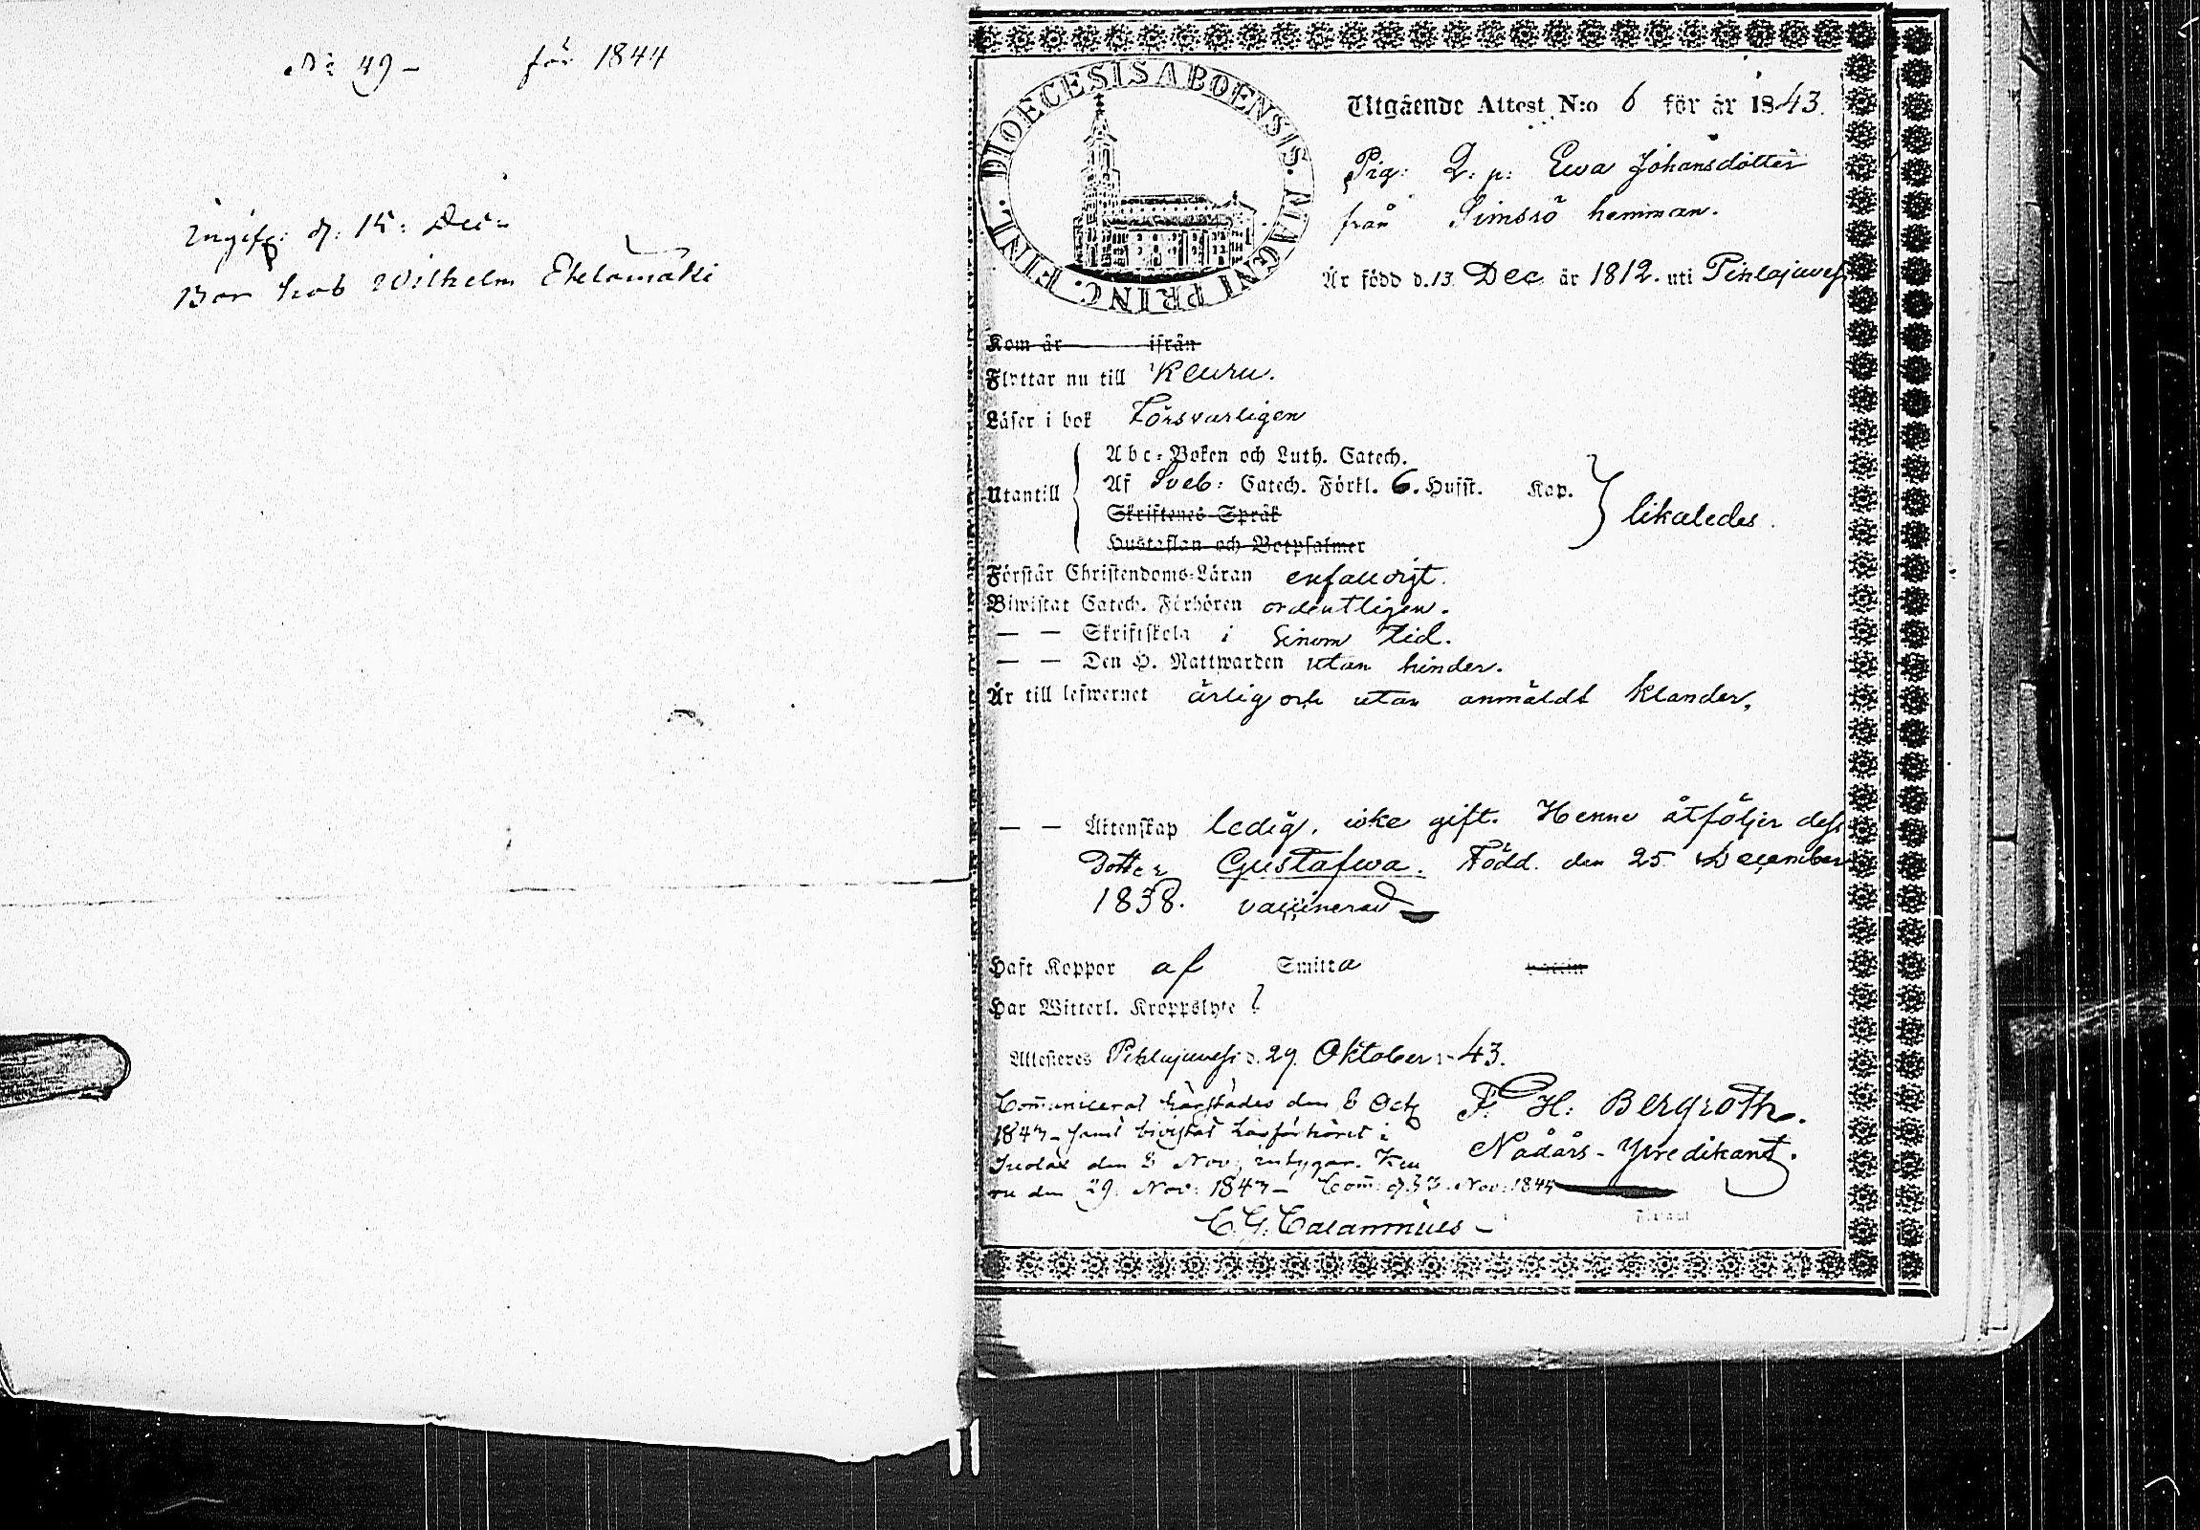 No 49 – för 1844
Ingift d. 15. Dec:
Wilhelm Etelämäki
DIOECESIS ABOENSIS. MAGNI PRINC. FINL.
Utgående Attest N:o 6 för år 1843.
Pig. Q. p: Ewa Johansdotter
från Simsiö hemman.
Är född d. 13 Dec år 1812. uti Pihlajavesi
Kom år ifrån
Flyttar nu till Keuru.
Läser i bok Försvarligen
Abc-Boken och Luth. Catech.
Utantill Af Sveb: Catech. Förkl. 6. Hufst. Kap. likaledes.
Skriftenes Språk
Hustaflan och Botpsalmer
Förstår Christendoms-Läran enfaldigt.
Biwistat Catech. Förhören ordentligen.
— — Skriftskola i sinom tid.
— — Den H. Nattwarden utan hinder.
Är till lefwernet ärlig och utan anmäldt klander,
— — Äktenskap ledig, icke gift. Henne åtföljer dess
Dotter Gustafwa. Född. den 25 December
1838. vaccinerad
Haft Koppor af Smitta vaccin
Har Witterl. Kroppslyte
Attesteras Pihlajavesi d. 29. Oktober 43.
Communicerat härstädes den 8 Oct F. H: Bergroth.
1843 – samt bivistat läsförhöret i
den 8 Nov, intygar. Keu Nådårs-Predikant.
ru den 29. Nov: 1843 – Com: Nov: 1844
C. G. Calamnius –